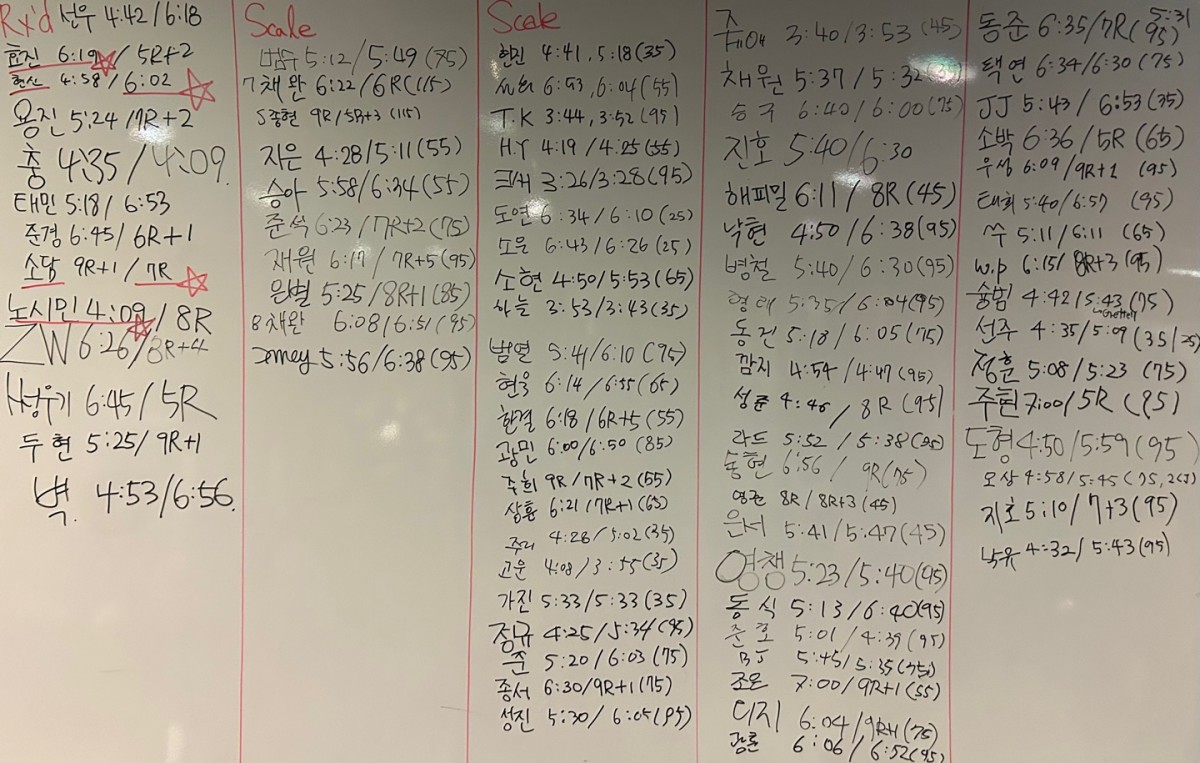 Rx'd 선우 4:42 / 6:18
효진 6:19 / 5R+2
현산 4:58 / 6:02
용진 5:24 / 7R+2
충 4:35 / 4:09
태민 5:18 / 6:53
준경 6:45 / 6R+1
소담 9R+1 / 7R
노시민 4:09 / 8R
ZW 6:26 / 8R+4
H성우기 6:45 / 5R
두현 5:25 / 9R+1
벽. 4:53/6:56.
Scale
범수 5:12 / 5:49 (75)
7채완 6:22 / 6R(115)
S종현 9R / 5R+3 (115)
지은 4:28 / 5:11 (55)
승아 5:58 / 6:34 (55)
준석 6:23 / 7R+2 (75)
재원 6:17 / 7R+5 (95)
은별 5:25 / 8R+1 (85)
8채완 6:08 / 6:51 (95)
5:56 / 6:38 (95)
Scale
현진 4:41, 5:18 (35)
6:53, 6:04 (55)
T.K 3:44, 3:52 (95)
H.Y 4:19 / 4:25 (55)
3:26 / 3:28 (95)
도연 6:34 / 6:10 (25)
도윤 6:43 / 6:26 (25)
소현 4:50 / 5:53 (65)
하늘 3:53 / 3:43 (35)
범연 5:41 / 6:10 (95)
현욱 6:14 / 6:55 (65)
한결 6:18 / 6R+5 (55)
광민 6:00 / 6:50 (85)
주희 9R / 7R+2 (55)
상훈 6:21 / 7R+1 (65)
주리 4:28 / 5:02 (35)
고운 4:08 / 3:55 (35)
가진 5:33 / 5:33 (35)
정규 4:25 / 5:34 (95)
준 5:20 / 6:03 (75)
종서 6:30 / 9R+1 (75)
성진 5:30 / 6:05 (95)
3:40 / 3:53 (45)
채원 5:37 / 5:32
승구 6:40 / 6:00 (75)
진호 5:40 / 6:30
해피밀 6:11 / 8R (45)
낙현 4:50 / 6:38 (95)
병철 5:40 / 6:30 (95)
형태 5:35 / 6:04 (95)
동건 5:18 / 6:05 (75)
깜지 4:54 / 4:47 (95)
성준 4:46 / 8R (95)
라드 5:52 / 5:38
송현 6:56 / 9R (75)
영관 8R / 8R+3 (45)
은서 5:41 / 5:47 (45)
영챙 5:23 / 5:40 (95)
동식 5:13 / 6:40 (95)
준호 5:01 / 4:39 (95)
BJ 5:45 / 5:35 (75)
조은 7:00 / 9R+1 (55)
디지 6:04 / 9R+1 (75)
광훈 6:06 / 6:52 (95)
5:31
동준 6:35 / 7R (95)
택연 6:34 / 6:30 (75)
JJ 5:43 / 6:53 (35)
소박 6:36 / 5R (65)
우성 6:09 / 9R+1 (95)
태희 5:40 / 6:57 (95)
쑤 5:11 / 6:11 (65)
W.P 6:15 / 8R+3 (95)
숭범 4:42 / 5:43 (75)
선주 4:35 / 5:09 (35/25)
정훈 5:08 / 5:23 (75)
주현 7:00 / 5R (95)
도형 4:50 / 5:59 (95)
오상 4:58 / 5:45
지호 5:10 / 7+3 (95)
낙유 4:32 / 5:43 (95)